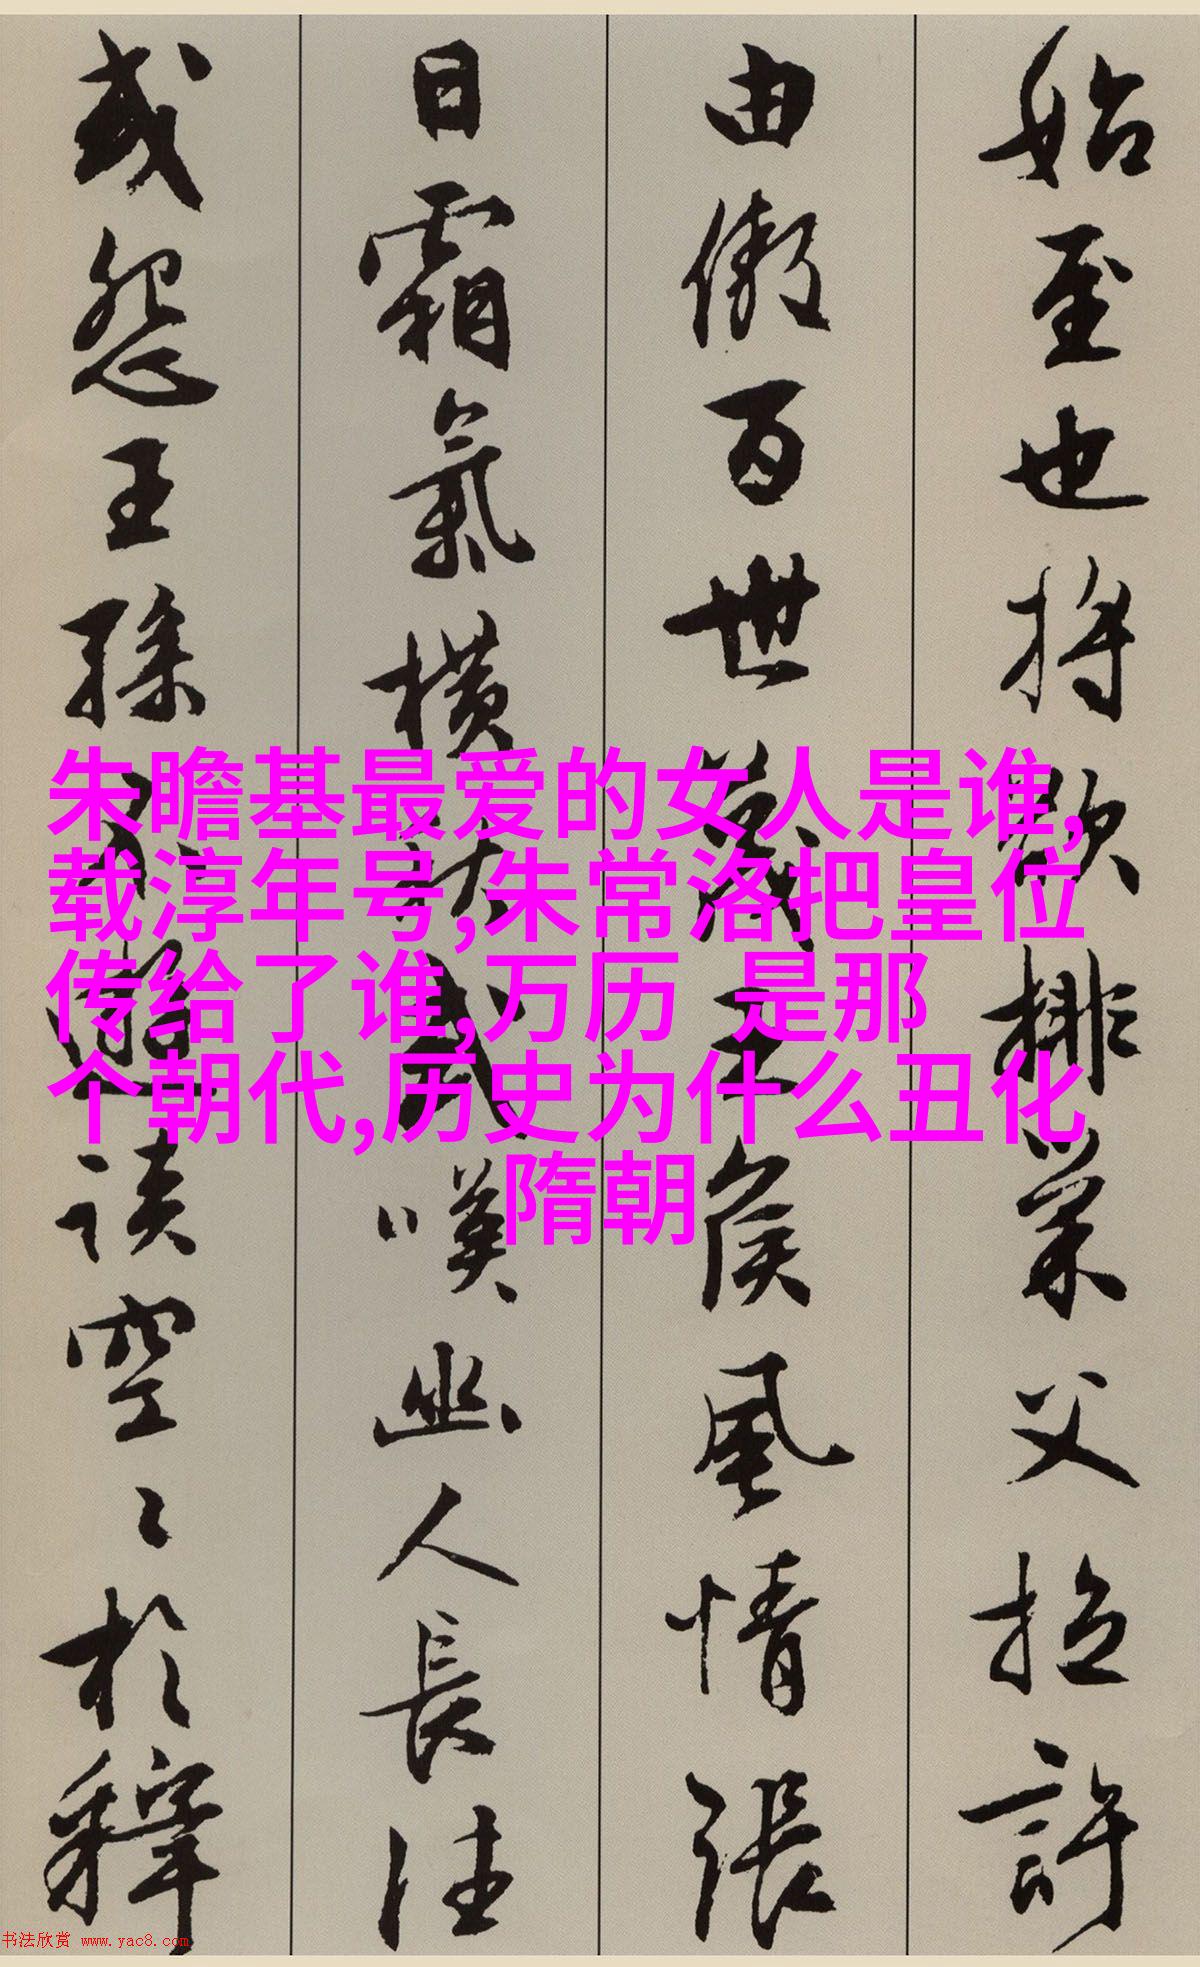 始至也將欲排巢父拉許
由傲百世蔑王侯風情張
日霜氣橫秋或嘆幽人長往
或怨王孫不遊談空〻於釋
朱瞻基最爱的女人是谁,
载淳年号,朱常洛把皇位
传给了谁,万历 是那
个朝代,历史为什么丑化
隋朝
书法欣赏 www.yac8.com